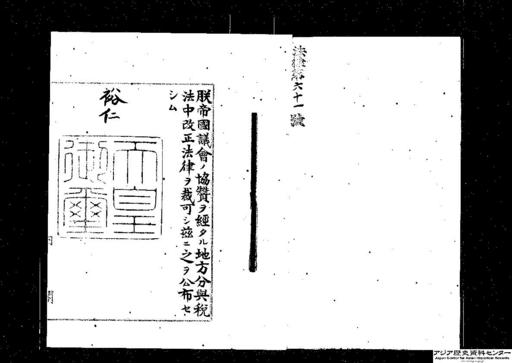 法律第六十一號
朕帝國議會ノ協贊ヲ經タル地方分與税
法中改正法律ヲ裁可シ茲ニ之ヲ公布セ
シム
裕仁
天皇
御璽
アジア歴史資料センター
Japan Center for Asian Historical Records